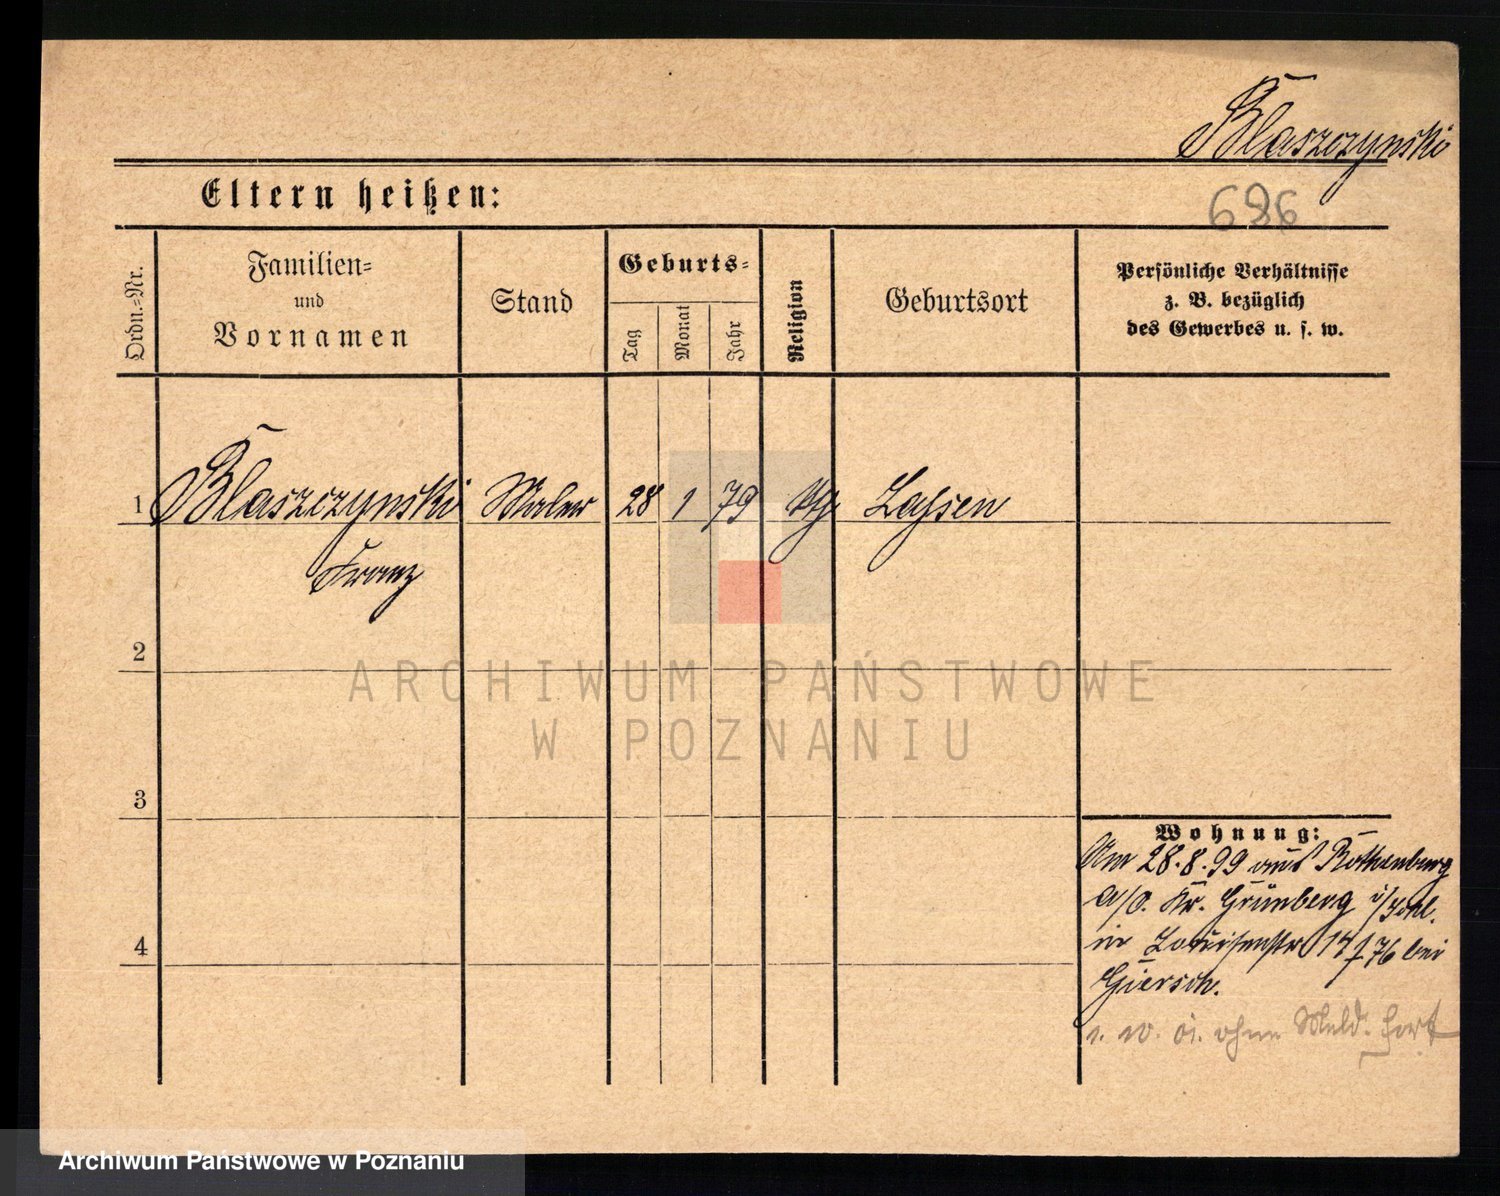 Blaszczynski
Eltern heißen:
686
Ordn.-Nr.
Familien-
und
Vornamen
Stand
Geburts-
Tag
Monat
Jahr
Religion
Geburtsort
Persönliche Verhältnisse
z. B. bezüglich
des Gewerbes u. s. w.
1 Blaszczynski Maler 28 1 79 kth Lassen
Franz
2
ARCHIWUM PAŃSTWOWE
W POZNANIU
3
Wohnung:
Am 28.8.99 aus Rothenburg
a/O. Kr. Grünberg i/Schl.
4
in Louisenstr 14 76 bei
Giersch.
ohne Meld. fort
Archiwum Państwowe w Poznaniu